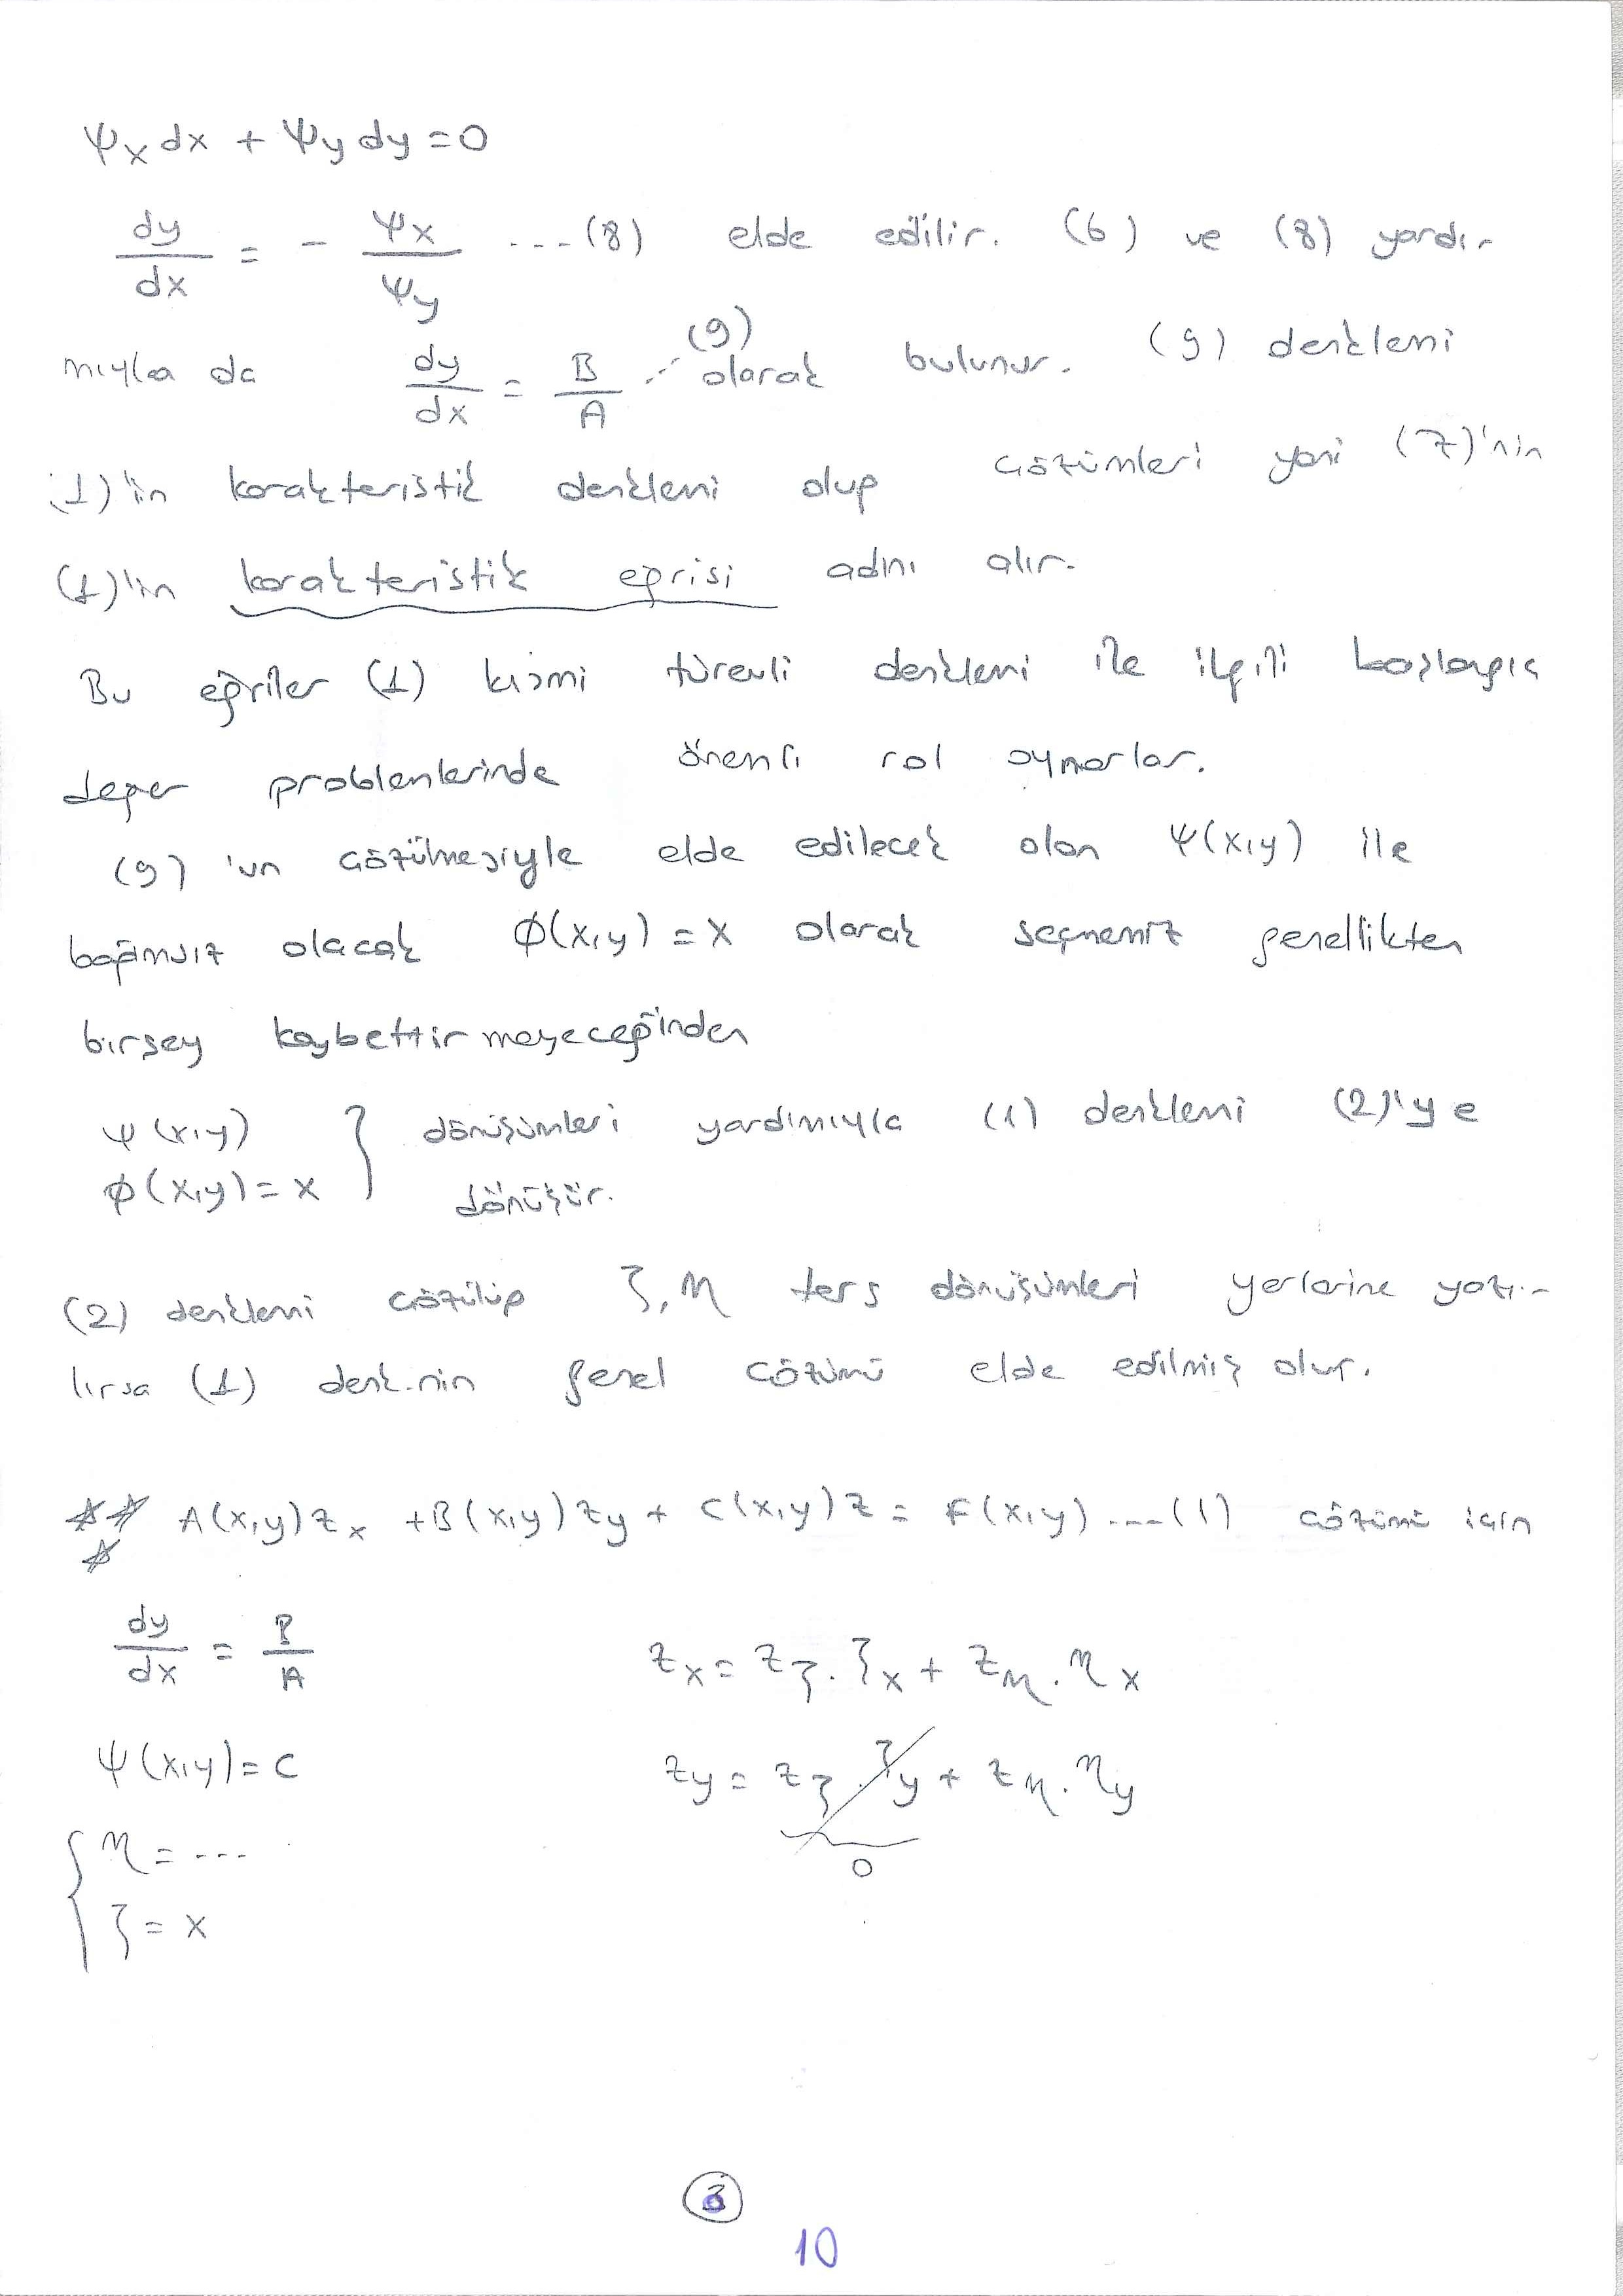 Ψx dx + Ψy dy = 0
dy/dx = - Ψx/Ψy ...(8) elde edilir. (6) ve (8) yardı-
mıyla da dy/dx = B/A ...(9) olarak bulunur. (9) denklemi
(1)'in karakteristik denklemi olup çözümleri yani (7)'nin
(1)'in karakteristik eğrisi adını alır.
Bu eğriler (1) kısmi türevli denklemi ile ilgili başlangıç
değer problemlerinde önemli rol oynarlar.
(9)'un çözülmesiyle elde edilecek olan Ψ(x,y) ile
bağımsız olacak ϕ(x,y) = x olarak seçmemiz genellikten
birşey kaybettirmeyeceğinden
Ψ(x,y)
ϕ(x,y) = x } dönüşümleri yardımıyla (1) denklemi (2)'ye
dönüşür.
(2) denklemi çözülüp ξ, η ters dönüşümleri yerlerine yazı-
lırsa (1) denk.nin genel çözümü elde edilmiş olur.
A(x,y)zx + B(x,y)zy + C(x,y)z = F(x,y) ...(1) çözümü için
dy/dx = B/A
zx = zξ.ξx + zη.ηx
Ψ(x,y) = c
zy = zξ.ξy + zη.ηy
0
{ η = ...
ξ = x
3
10